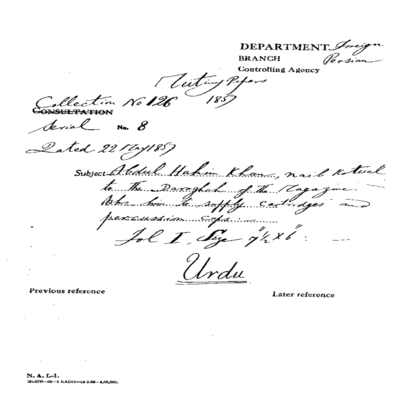 DEPARTMENT. Foreign
BRANCH Persian
Controlling Agency
Mutiny Papers
Collection No 126 1857
CONSULTATION
Serial No. 8
Dated 22 May 1857
Subject Abdul Hakim Khan, naib Kotwal
to the Daroghah of the Magazine
him to supply cartridges and
percussion caps
fol I, Size 7½" x 6"
Urdu
Previous reference
Later reference
N. A. L-1.